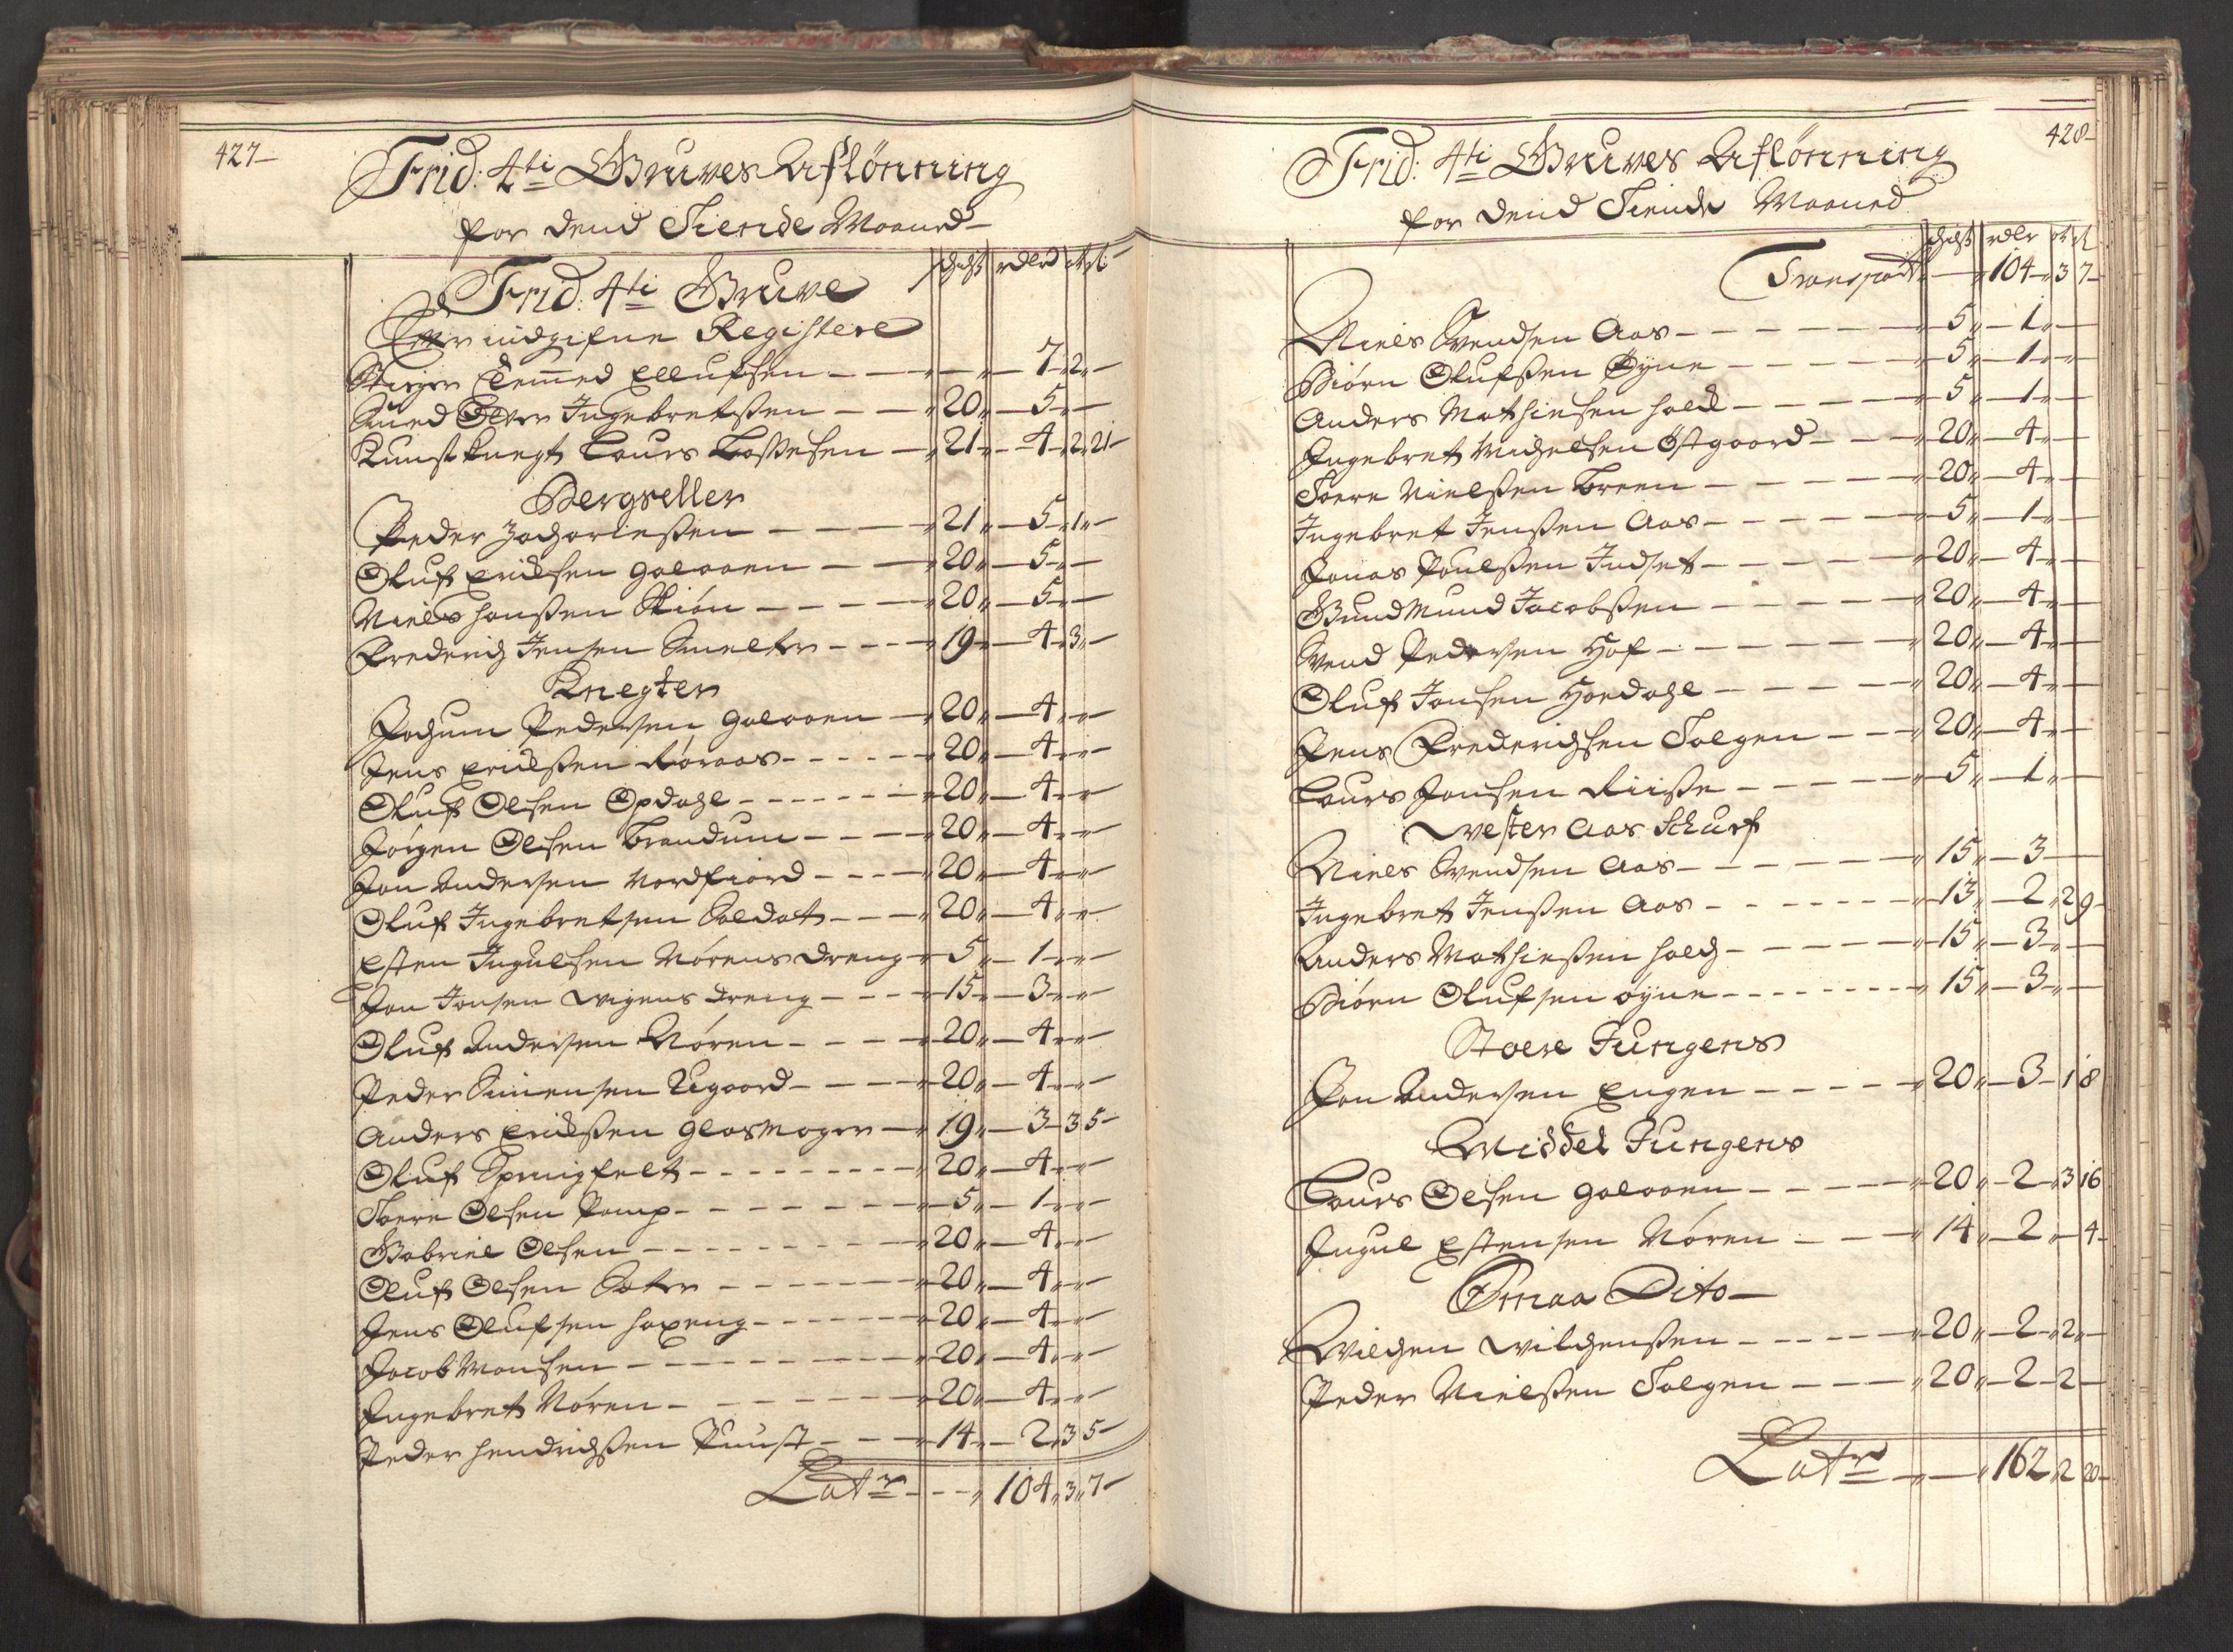 427
Frid: 4ti Gruves Aflønning
for dend Tiende Maaned
Frid: 4ti Gruve
indgifne Registere
Stiger Clemmed Ellufsen 7 2
Smed Ingebretsen 20 5
Kunst knegt Lours 21 4 2 21
Bergseller
Peder Zachariesen 21 5 1
Oluf Erichsen Galaaen 20 5
Niels Hansen Skiön 20 5
Frederich Jensen Smelter 19 4 3
Knegter
Jochum Pedersen Galaaen 20 4
Jens Erichsen Røraas 20 4
Oluf Olsen Opdahl 20 4
Jörgen Olsen Brandum 20 4
Jon Andersen Nordfiord 20 4
Oluf Ingebretsen Soldat 20 4
Esten Ingulsen Nörens dreng 5 1
Jon Jonsen Wigens dreng 15 3
Oluf Andersen Nören 20 4
Peder Simensen Aagaard 20 4
Anders Erichsen Glasmager 19 3 3 5
Oluf Springfelt 20 4
Tore Olsen Pamp 5 1
Gabriel Olsen 20 4
Oluf Olsen Sater 20 4
Jens Olufsen Haxeng 20 4
Jacob Monsen 20 4
Ingebret Nören 20 4
Peder Hendrichsen Puust 14 2 3 5
Latr 104 3 7
428
Frid: 4ti Gruves Aflønning
for dend Tiende Maaned
Transport 104 3 7
Niels Svendsen Aas 5 1
Biörn Olufsen Öyne 5 1
Anders Mathiesen 5 1
Ingebret Michelsen Östgaard 20 4
Tore Nielsen Breen 20 4
Ingebret Jensen Aas 5 1
Jonas Poulsen Indset 20 4
Gundmund Jacobsen 20 4
Svend Pedersen Hof 20 4
Oluf Jonsen Hoedahl 20 4
Jens Frederichsen Tolgen 20 4
Lours Jonsen Riise 5 1
Wester Aas Schurf
Niels Svendsen Aas 15 3
Ingebret Jensen Aas 13 2 2 9
Anders Mathiesen 15 3
Biörn Olufsen öyne 15 3
Stoere Jungens
Jon Andersen Engen 20 3 1 8
Middel Jungens
Lours Olsen Galaaen 20 2 3 16
Ingul Estensen Nören 14 2 4
Smaa Dito
Wilchen Wilchensen 20 2 2
Peder Nielsen Tolgen 20 2 2
Latr 162 2 20